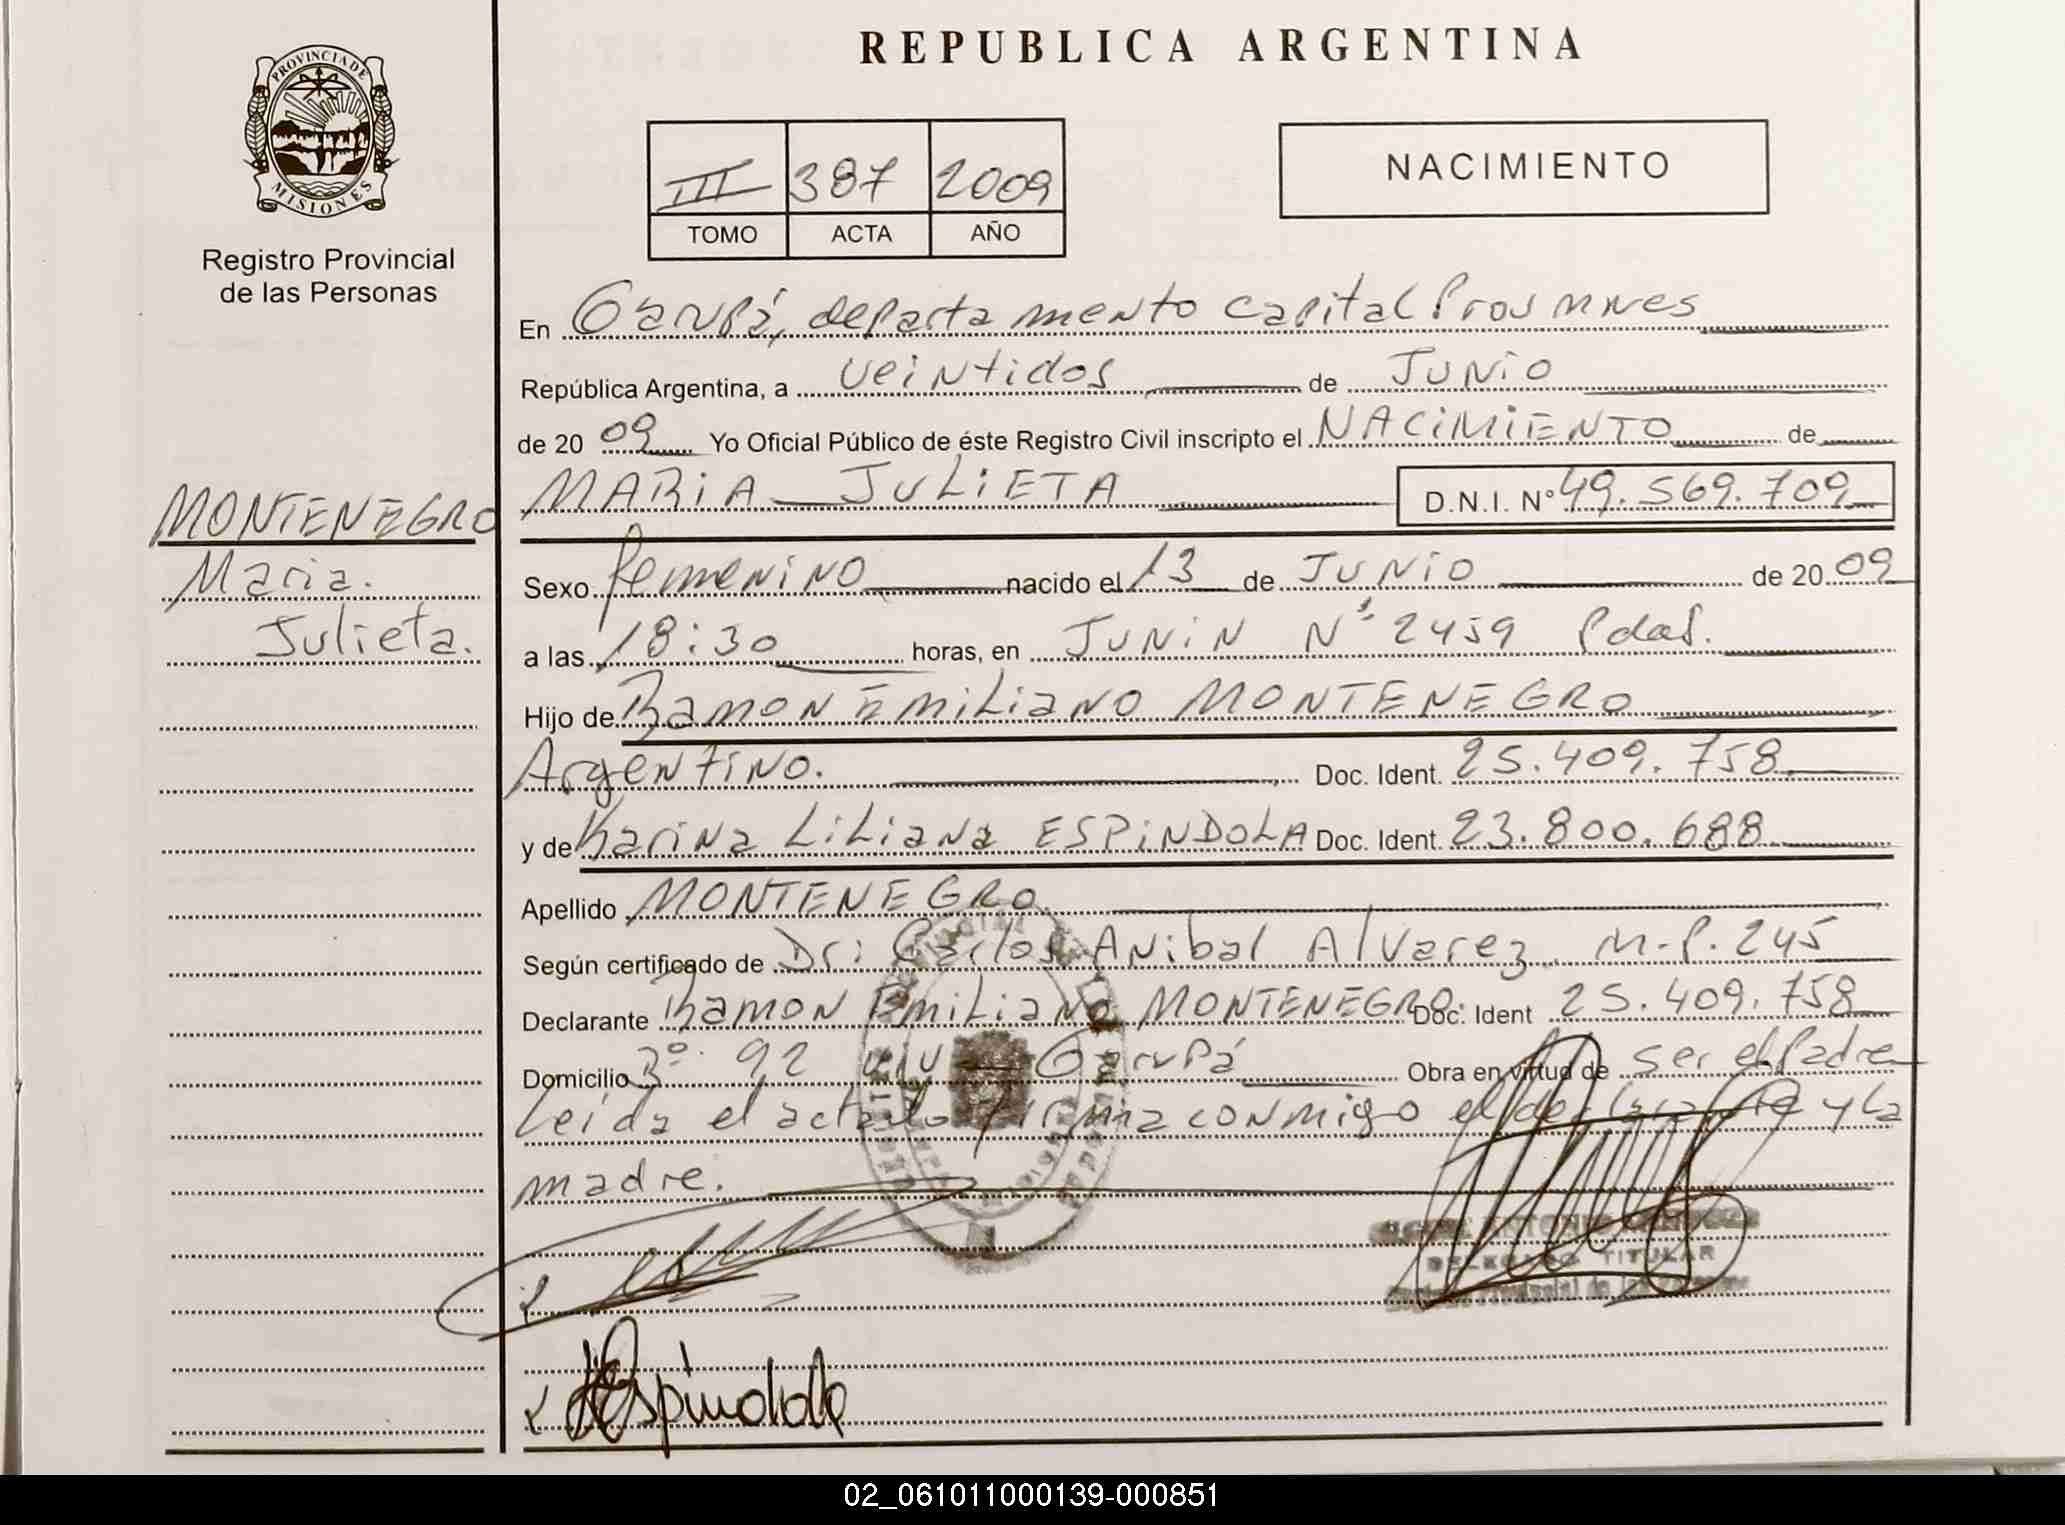 REPUBLICA ARGENTINA
PROVINCIA DE
MISIONES
Registro Provincial
de las Personas
III 387 2009
TOMO ACTA AÑO
NACIMIENTO
En Garupá, departamento Capital Prov Mnes
República Argentina, a veintidos de Junio
de 20 09 Yo Oficial Público de éste Registro Civil inscripto el NACIMIENTO de
MONTENEGRO
Maria.
Julieta.
MARIA JULIETA D.N.I. Nº 49.569.709
Sexo femenino nacido el 13 de Junio de 20 09
a las 18:30 horas, en Junin Nº 2459 Pdas.
Hijo de Ramon Emiliano MONTENEGRO
Argentino. Doc. Ident. 25.409.758
y de Karina Liliana ESPINDOLA Doc. Ident. 23.800.688
Apellido MONTENEGRO
Según certificado de Dr: Carlos Anibal Alvarez M.P. 245
Declarante Ramon Emiliano MONTENEGRO Doc. Ident 25.409.758
Domicilio 3º 92 viv Garupá Obra en virtud de ser el Padre
Leida el acta lo firma conmigo el declarante y la
madre.
DELEGADO TITULAR
Registro Provincial de las Personas
Espindola
02_061011000139-000851